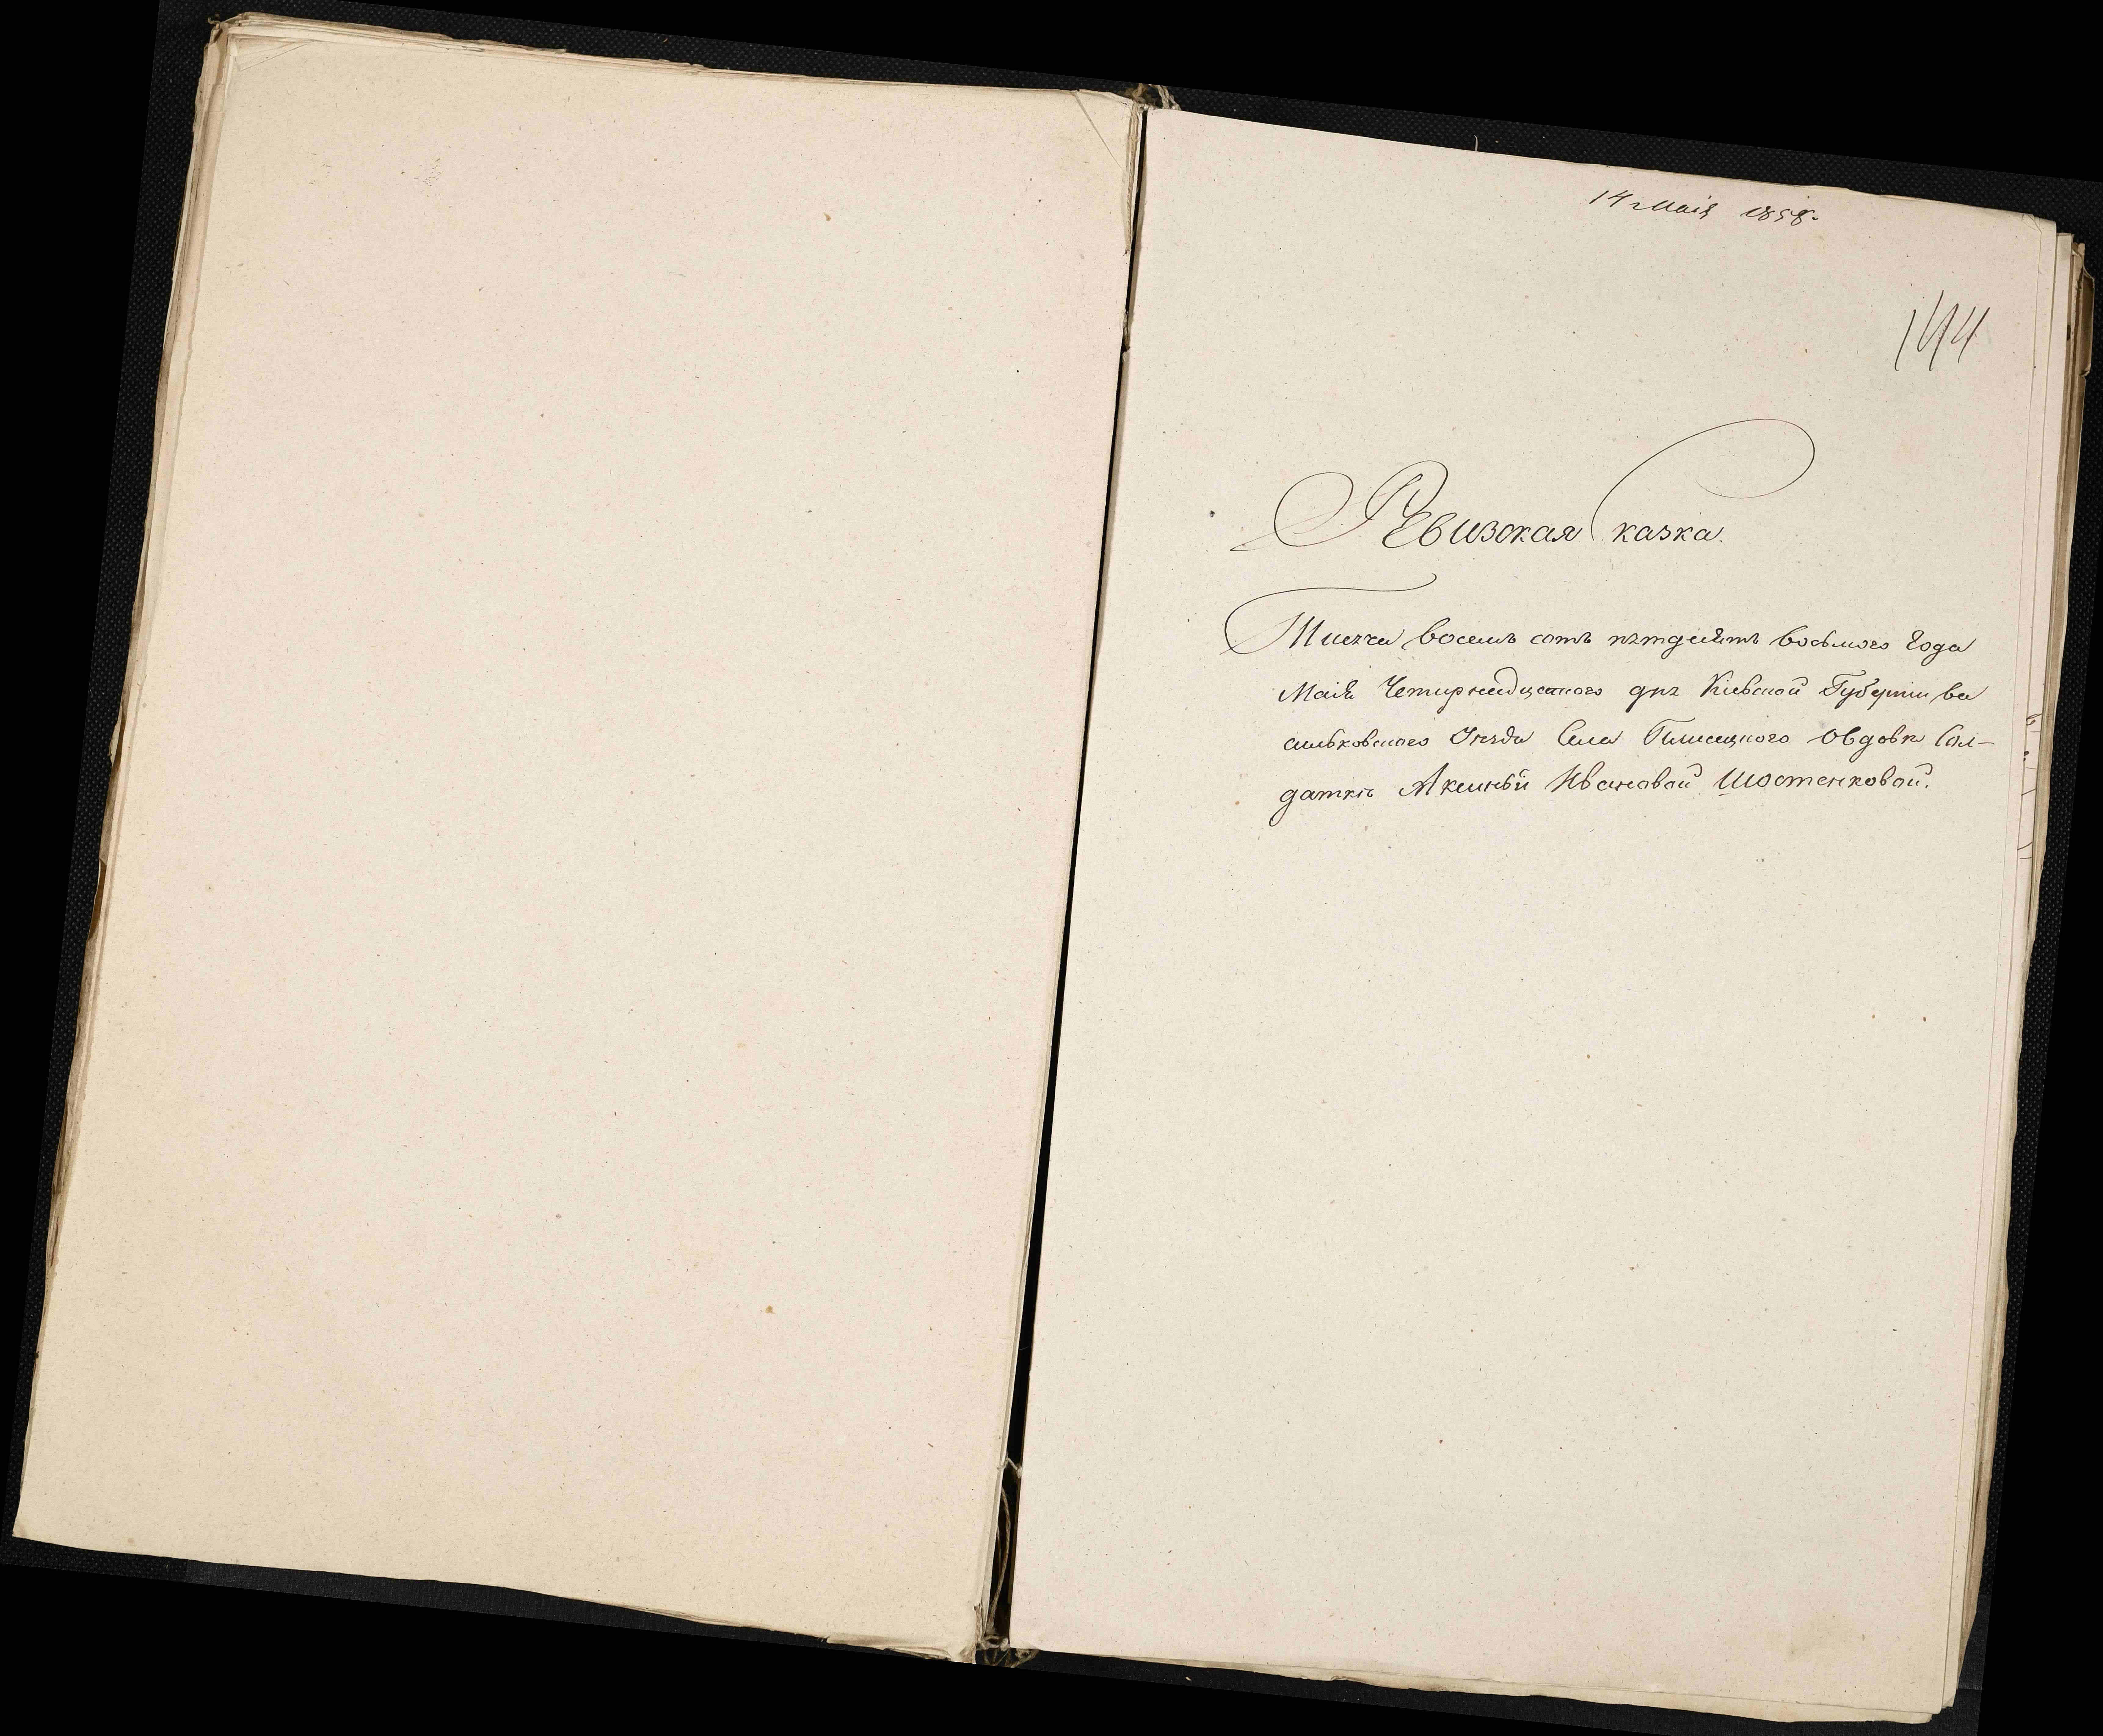 14 Маія 1858.
144
Ревизская казка.
Тисяча восемъ сотъ пятдесятъ восьмого Года
Маія Четирнадцатого дня Кіевской Губерніи Ва
сильковского Уезда Села овдовѣ Сол-
даткѣ Аксиньи Ивановой Шостенковой.